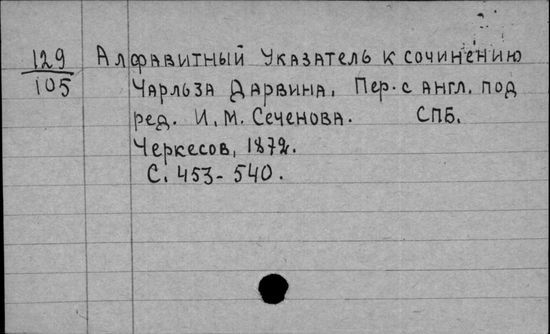 129 Алфавитный указатель к сочинению
105 Чарльза Дарвина. Пер. с англ. под
ред. И.М. Сеченова. СПБ.
Черкесов, 1872.
С. 453-540.